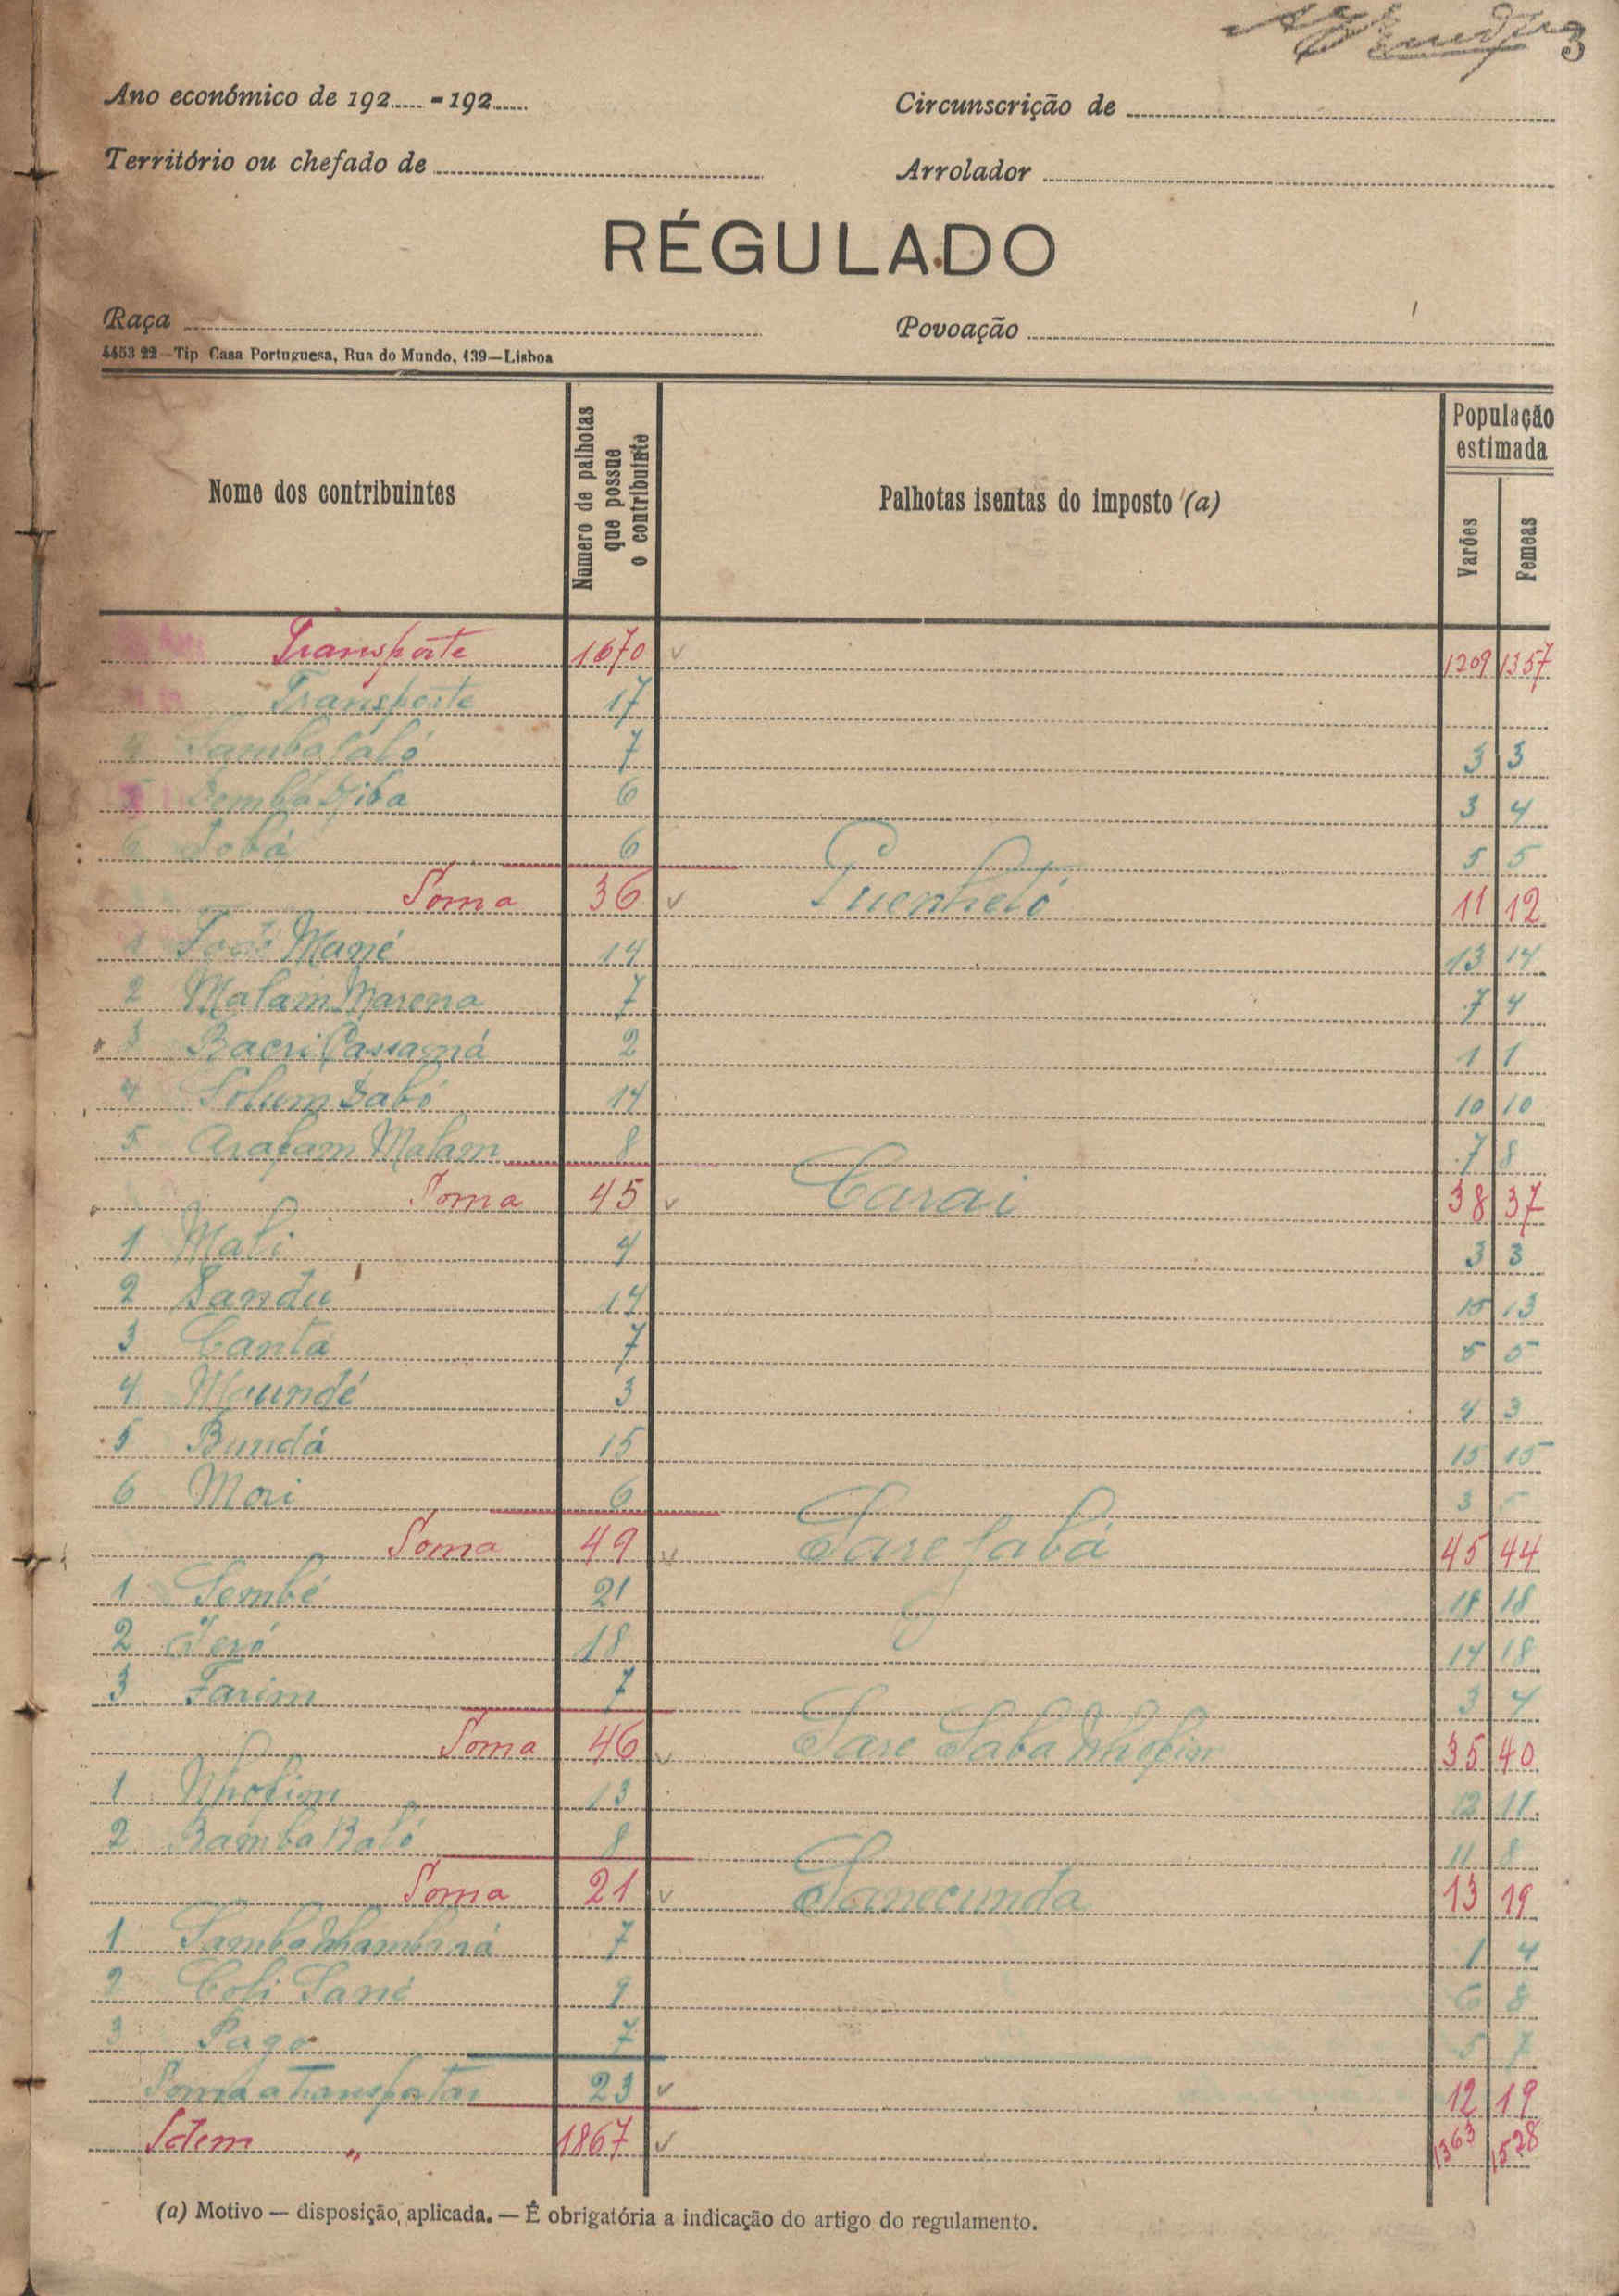 3
Ano económico de 192..... - 192......
Circunscrição de
Território ou chefado de
Arrolador
RÉGULADO
Raça
Povoação
4453 22—Tip Casa Portuguesa, Rua do Mundo, 139—Lisboa
Nome dos contribuintes
Número de palhotas que possue o contribuinte
Palhotas isentas do imposto (a)
População estimada
Varões
Femeas
Transporte 1670 1209 1357
Transporte 17
4 Samba 7 3 3
5 Demba Djiba 6 3 4
6 Jobá 6 5 5
Soma 36 11 12
1 José Mané 14 13 14
2 Malam Marena 7 7 4
3 Bacri Cassamá 2 1 1
4 Solum Dabó 14 10 10
5 Arafam Malam 8 7 8
Soma 45 Carai 38 37
1 Mali 4 3 3
2 Sandu 14 15 13
3 Canta 7 5 5
4 Maundé 3 4 3
5 Bundá 15 15 15
6 Mori 6 3
Soma 49 Sare 45 44
1 Sembé 21 18 18
2 18 14 18
3 Farim 7 3 4
Soma 46 Sare Saba 35 40
1 13 11
2 Bamba Baló 8 11 8
Soma 21 Sanecunda 13 19
1 Samba 7 1 4
2 Coli Sané 9 6 8
3 Sago 7 5 7
Soma a transportar 23 12 19
Idem " 1867 1363 1528
(a) Motivo — disposição aplicada. — É obrigatória a indicação do artigo do regulamento.